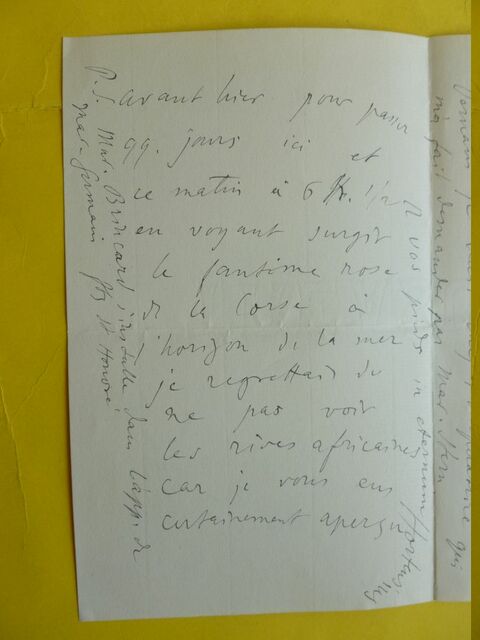 avant hier pour passer
qq. jours ici et
ce matin à 6 h. 1/2
en voyant surgir
le fantôme rose
de la Corse à
l'horizon de la mer
je regrettais de
ne pas voir
les rives africaines
car je vous eus
certainement aperçu
à vos pieds in eternum
P.S. Mad. Brincard s'installe dans l'app. de
Mad. Germain fbg St Honoré.
m'a fait demander par Mad. Stern
qui